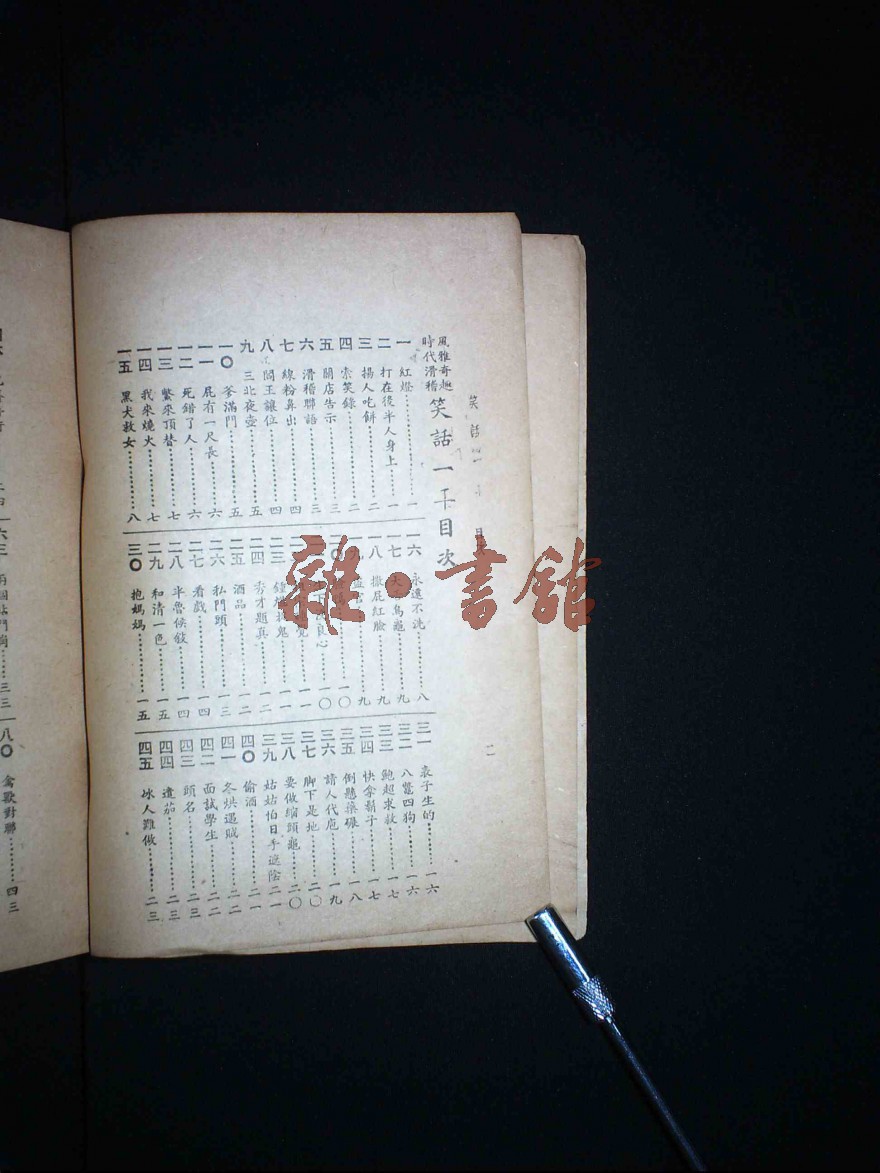 笑話
目次
風雅奇趣
時代滑稽
笑話一千目次
一 紅燈 一
二 打在後半人身上 一
三 揚人吃餅 二
四 索笑錄 二
五 關店告示 三
六 滑稽聯語 三
七 線粉鼻出 四
八 閻王讓位 四
九 三北夜壺 五
一〇 爹滿門 五
一一 屁有一尺長 六
一二 死錯了人 六
一三 鱉來頂替 七
一四 我來燒火 七
一五 黑犬救女 八
一六 永遠不洗 八
一七 大 烏龜 九
一八 撒屁紅臉 九
一九 九
一〇
良心 一〇
一一
二三 鬼 一一
二四 秀才題真 一二
二五 酒品 一二
二六 私門頭 一三
二七 看戲 一四
二八 半魯候敍 一四
二九 和清一色 一五
三〇 抱媽媽 一五
三一 袁子生的 一六
三二 八鱉四狗 一六
三三 鮑超求救 一七
三四 快拿鬍子 一七
三五 倒懸藥碾 一八
三六 請人代庖 一九
三七 脚下是地 二〇
三八 要做縮頭龜 二〇
三九 姑姑怕日手遮陰 二一
四〇 偷酒 二一
四一 冬烘遇賊 二二
四二 面試學生 二二
四三 頭名 二三
四四 遺茄 二三
四五 冰人難做 二三
二
六三 兩個 門 三三
八〇 禽獸對聯 四三
雜·書館